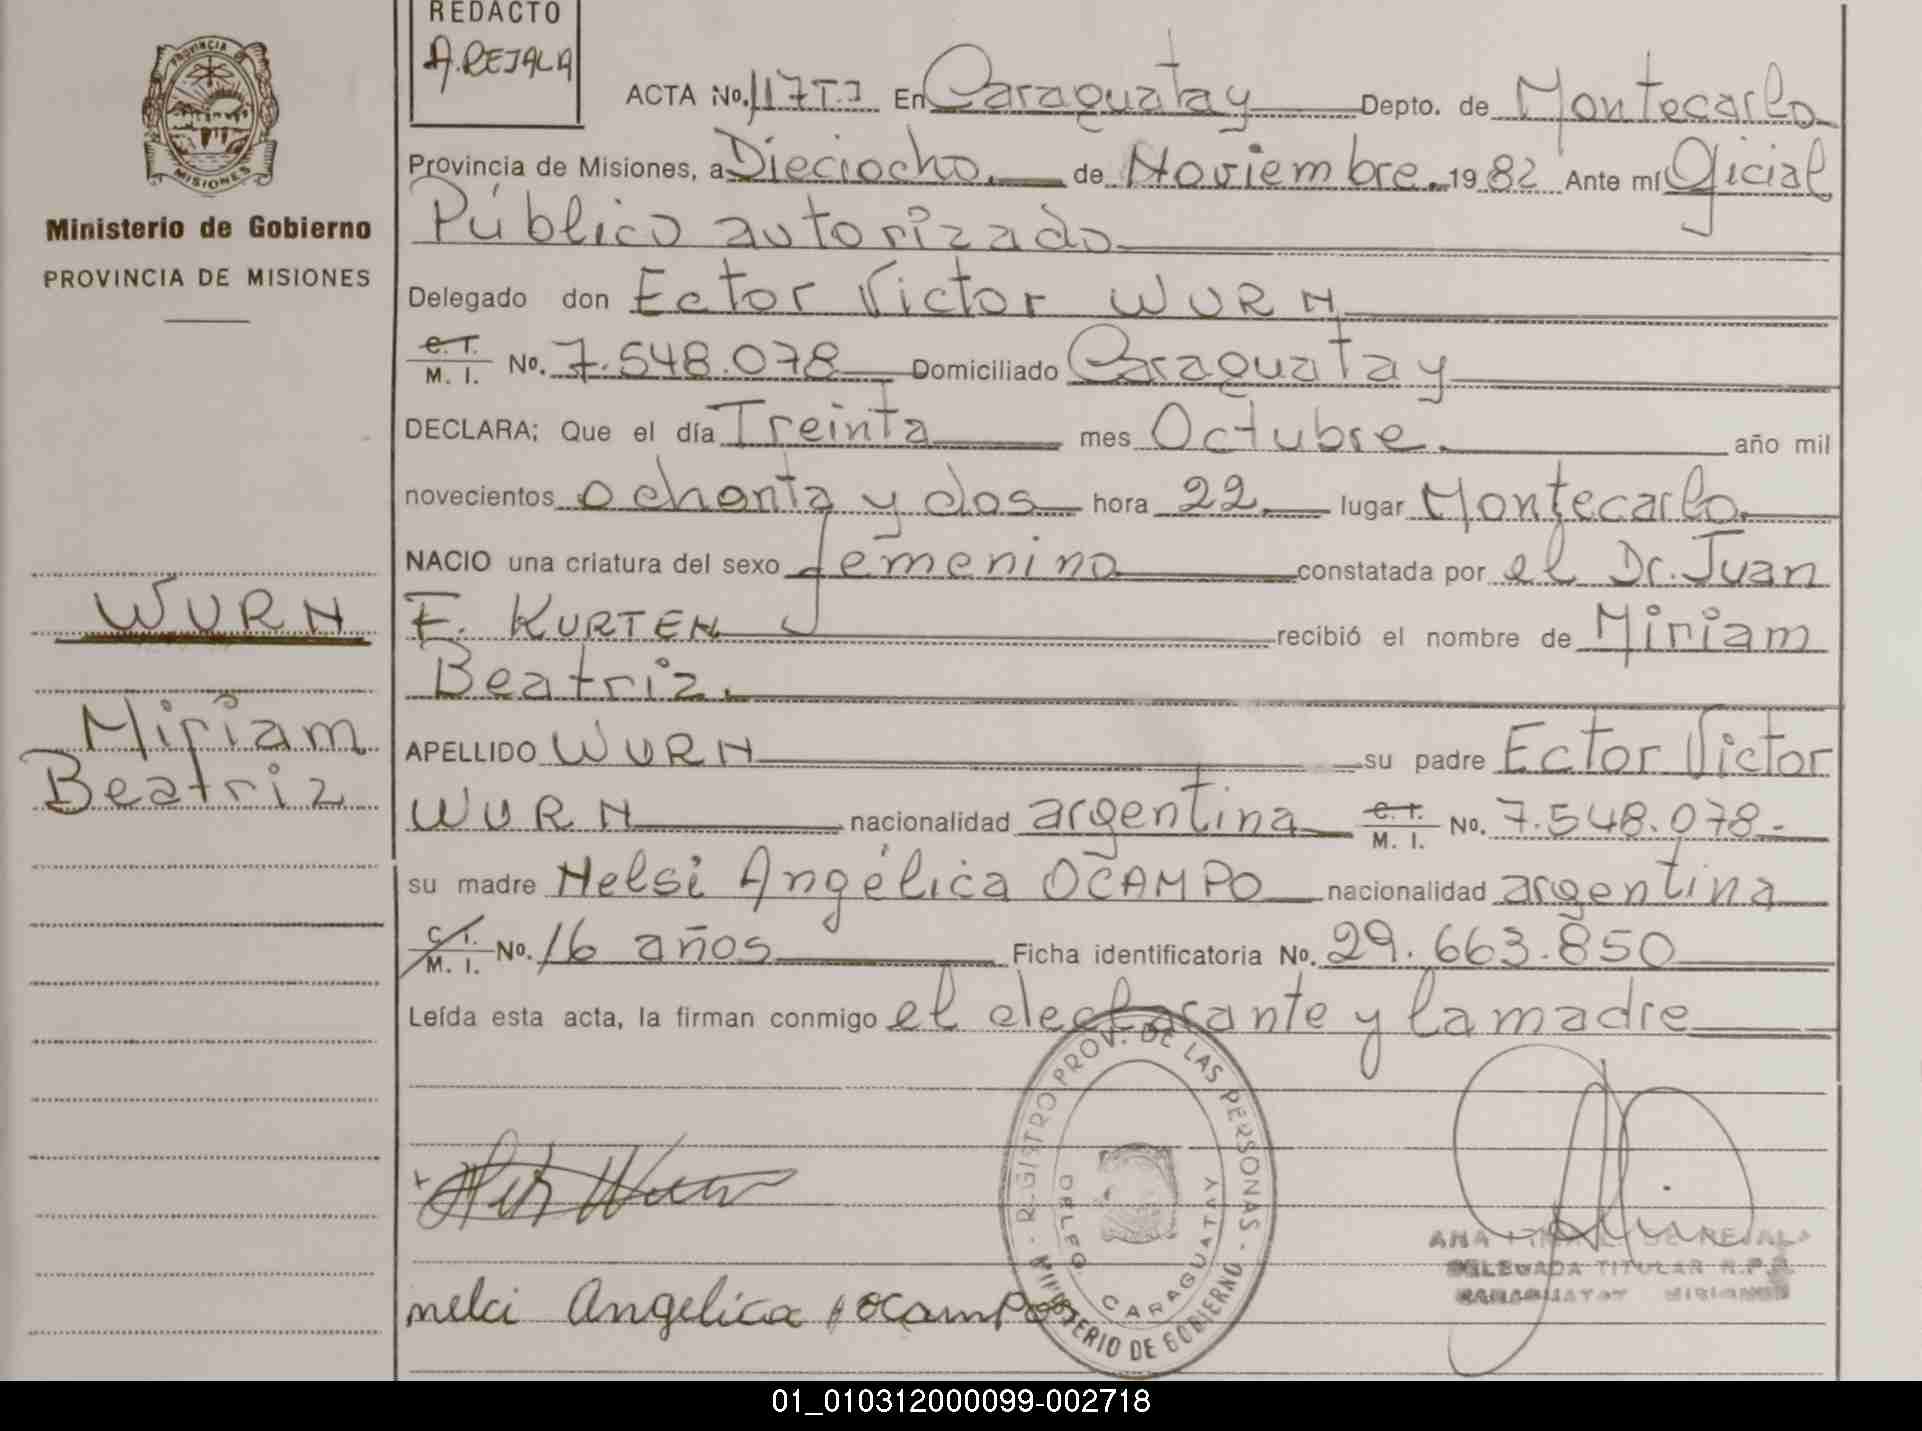 REDACTO
A. REJALA
PROVINCIA DE
MISIONES
Ministerio de Gobierno
PROVINCIA DE MISIONES
WURN
Miriam
Beatriz
ACTA No. 117 T.I En Caraguatay Depto. de Montecarlo
Provincia de Misiones, a Dieciocho. de Noviembre. 1982 Ante mí Oficial
Público autorizado
Delegado don Ector Victor WURN
C. I. M. I. No. 7.548.078 Domiciliado Caraguatay
DECLARA; Que el día Treinta mes Octubre. año mil
novecientos ochenta y dos hora 22. lugar Montecarlo.
NACIO una criatura del sexo femenino constatada por el Dr. Juan
F. KURTEN recibió el nombre de Miriam
Beatriz.
APELLIDO WURN su padre Ector Victor
WURN nacionalidad argentina C. I. M. I. No. 7.548.078.-
su madre Nelsi Angélica OCAMPO nacionalidad argentina
C. I. M. I. No. 16 años Ficha identificatoria No. 29.663.850
Leída esta acta, la firman conmigo el declarante y la madre
REGISTRO PROV. DE LAS PERSONAS - MINISTERIO DE GOBIERNO -
DELEG. CARAGUATAY
nelci Angelica ocampo
ANA DE REJALA
DELEGADA TITULAR R.P.P.
CARAGUATAY MISIONES
01_010312000099-002718